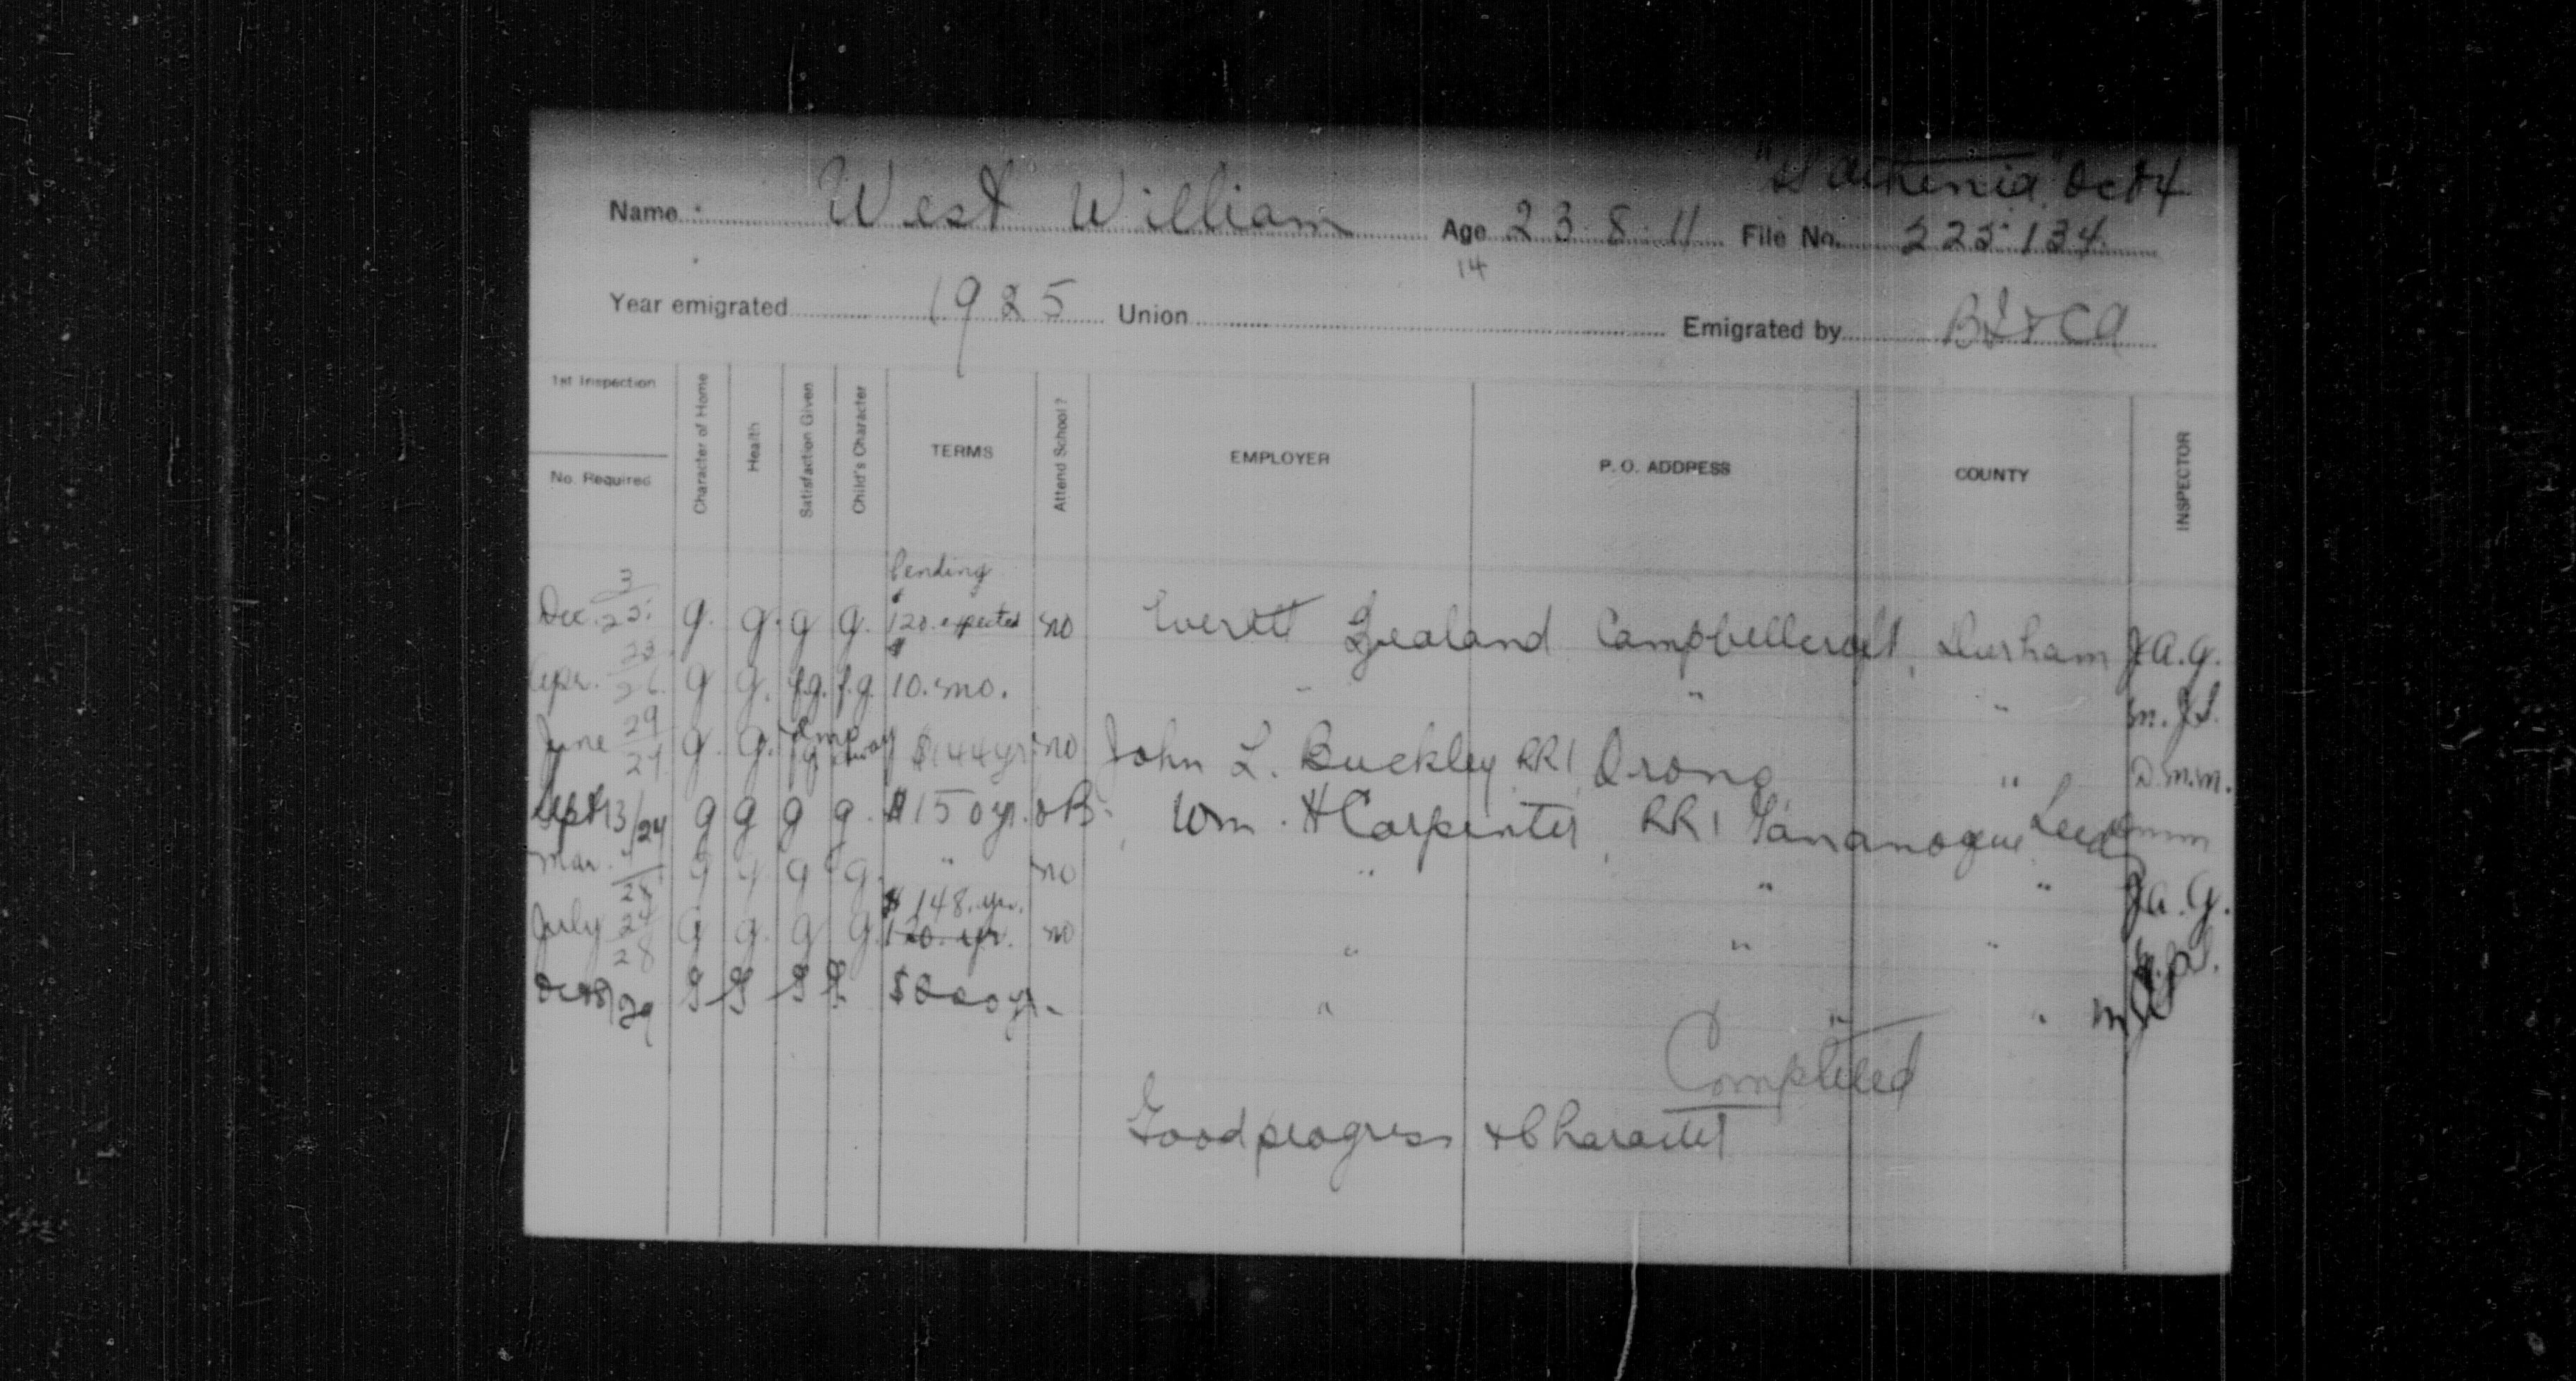 "Athenia" Oct 4
Name West William Age 23.8.11 File No. 225134
14
Year emigrated 1925 Union Emigrated by
1st Inspection
No. Required
Character of Home
Health
Satisfaction Given
Child's Character
TERMS
Attend School?
EMPLOYER
P. O. ADDPESS
COUNTY
INSPECTOR
Pending
Dec. 3/25. g. g. g g. $120. expected no Everett Zealand Campbellcroft, Durham J.A.G.
Apr. 23/26. g g. f.g. f.g. $10. mo. " " "
June 29/27 g. g. $144 yr no John L. Buckley RR1 Orono " D.M.M.
Sept 13/27 g g g g. $150 yr. Wm. H Carpenter, RR1 Gananoque Leeds DMM
Mar. g g. g g. " no " " " J.A.G.
$148. yr.
July 24/28 g g. g g. 120. yr. no " " "
Oct 8/29 g g g g " " "
Completed
Good progress & Character